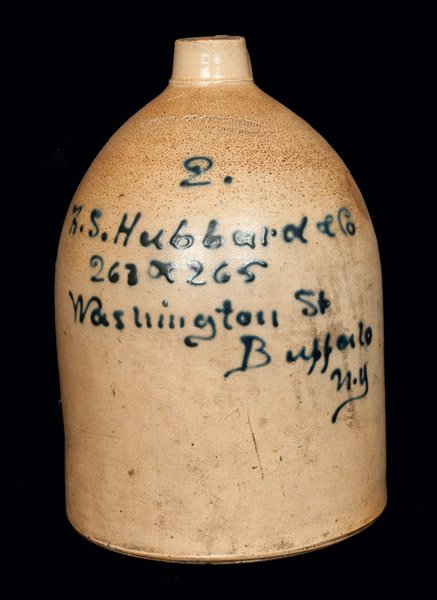 2.
H.S. Hubbard & Co
263 & 265
Washington St
Buffalo
N.Y